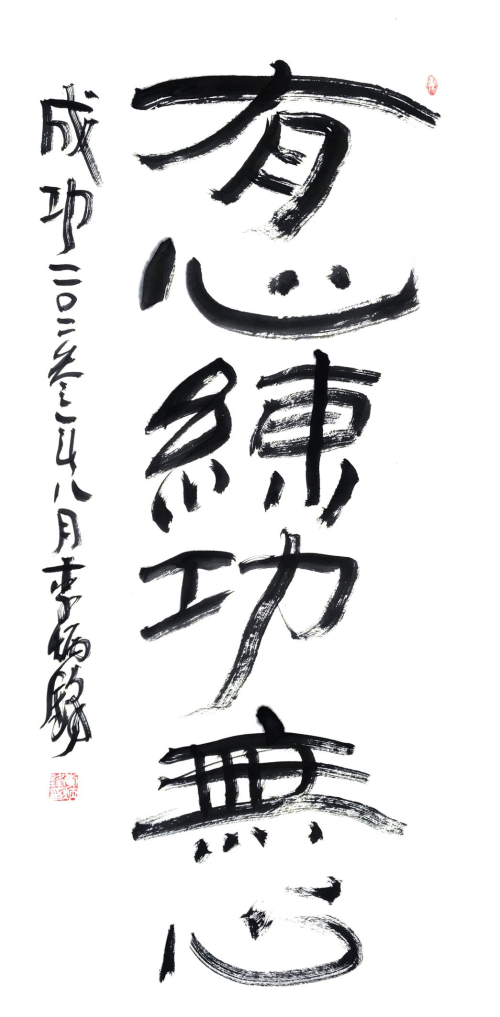 有心練功無心
成功二〇二叁年八月李炳